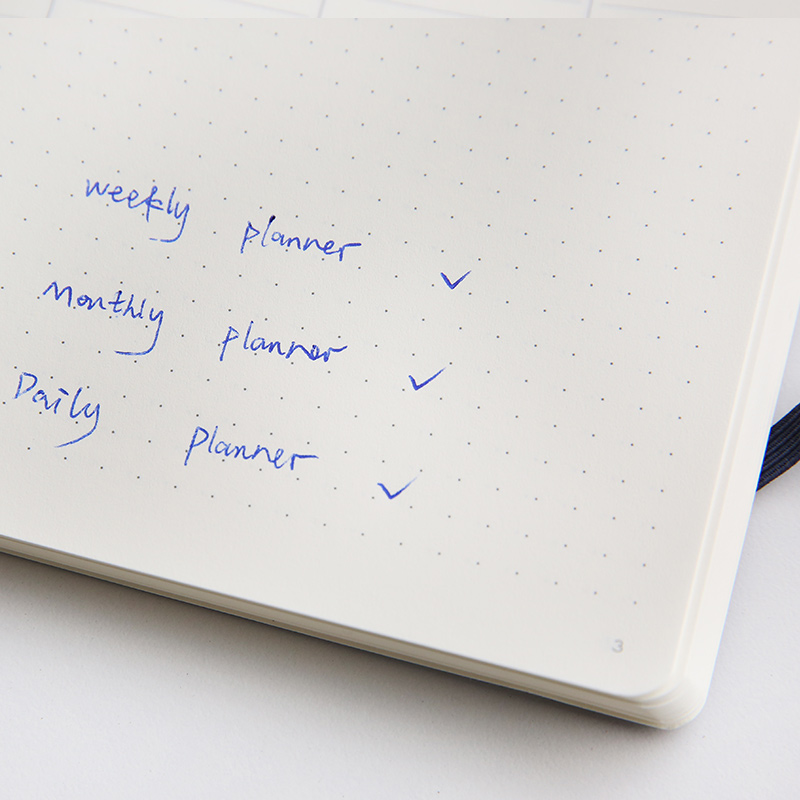 weekly planner ✓
Monthly planner ✓
Daily planner ✓
3